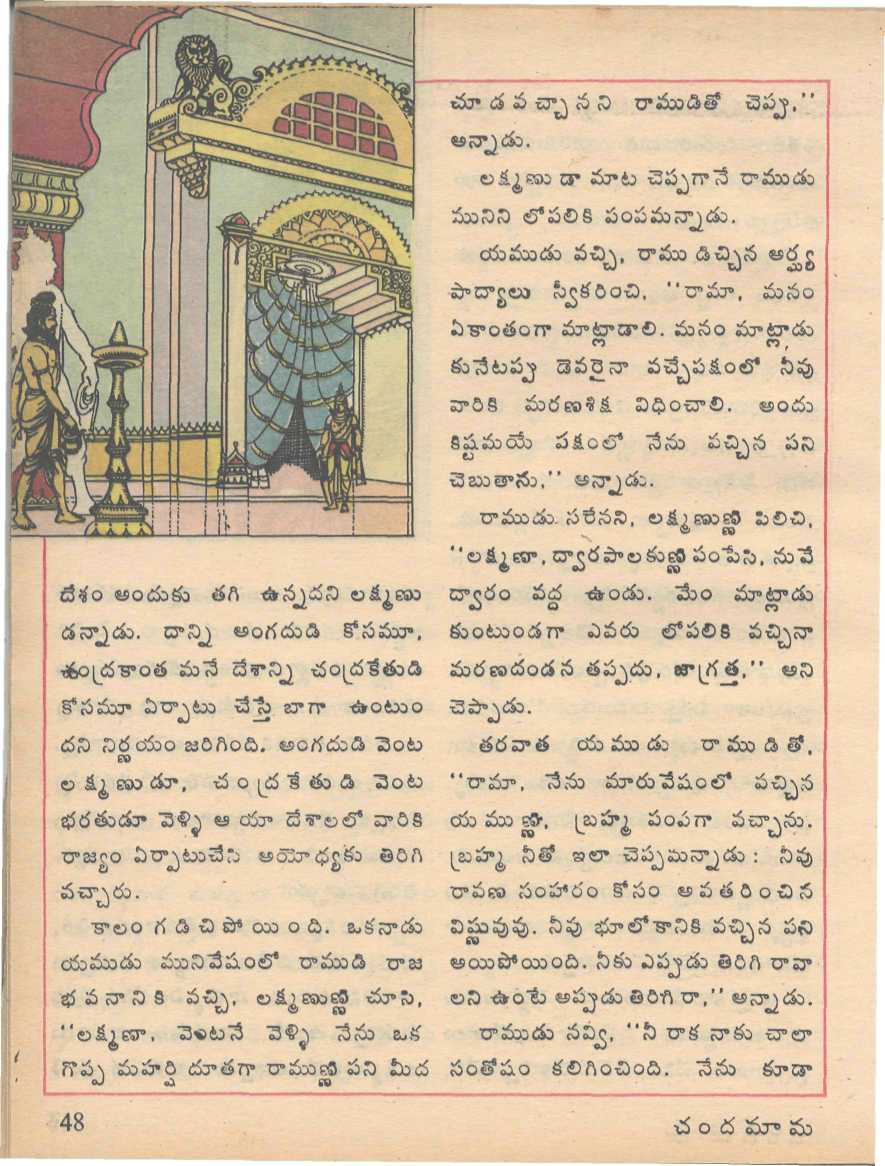 దేశం అందుకు తగి ఉన్నదని లక్ష్మణు
డన్నాడు. దాన్ని అంగదుడి కోసమూ,
చంద్రకాంత మనే దేశాన్ని చంద్రకేతుడి
కోసమూ ఏర్పాటు చేస్తే బాగా ఉంటుం
దని నిర్ణయం జరిగింది. అంగదుడి వెంట
లక్ష్మణుడూ, చంద్రకేతుడి వెంట
భరతుడూ వెళ్ళి ఆ యా దేశాలలో వారికి
రాజ్యం ఏర్పాటుచేసి అయోధ్యకు తిరిగి
వచ్చారు.
కాలం గడిచిపోయింది. ఒకనాడు
యముడు మునివేషంలో రాముడి రాజ
భవనానికి వచ్చి, లక్ష్మణుణ్ణి చూసి,
‘‘లక్ష్మణా, వెంటనే వెళ్ళి నేను ఒక
గొప్ప మహర్షి దూతగా రాముణ్ణి పని మీద
చూడవచ్చానని రాముడితో చెప్పు,’’
అన్నాడు.
లక్ష్మణు డా మాట చెప్పగానే రాముడు
మునిని లోపలికి పంపమన్నాడు.
యముడు వచ్చి, రాము డిచ్చిన అర్ఘ్య
పాద్యాలు స్వీకరించి, ‘‘రామా, మనం
ఏకాంతంగా మాట్లాడాలి. మనం మాట్లాడు
కునేటప్పు డెవరైనా వచ్చేపక్షంలో నీవు
వారికి మరణశిక్ష విధించాలి. అందు
కిష్టమయే పక్షంలో నేను వచ్చిన పని
చెబుతాను,’’ అన్నాడు.
రాముడు సరేనని, లక్ష్మణుణ్ణి పిలిచి,
‘‘లక్ష్మణా, ద్వారపాలకుణ్ణి పంపేసి, నువే
ద్వారం వద్ద ఉండు. మేం మాట్లాడు
కుంటుండగా ఎవరు లోపలికి వచ్చినా
మరణదండన తప్పదు, జాగ్రత్త,’’ అని
చెప్పాడు.
తరవాత యముడు రాముడితో,
‘‘రామా, నేను మారువేషంలో వచ్చిన
యముణ్ణి, బ్రహ్మ పంపగా వచ్చాను.
బ్రహ్మ నీతో ఇలా చెప్పమన్నాడు: నీవు
రావణ సంహారం కోసం అవతరించిన
విష్ణువువు. నీవు భూలోకానికి వచ్చిన పని
అయిపోయింది. నీకు ఎప్పుడు తిరిగి రావా
లని ఉంటే అప్పుడు తిరిగి రా,’’ అన్నాడు.
రాముడు నవ్వి, ‘‘నీ రాక నాకు చాలా
సంతోషం కలిగించింది. నేను కూడా
48
చందమామ